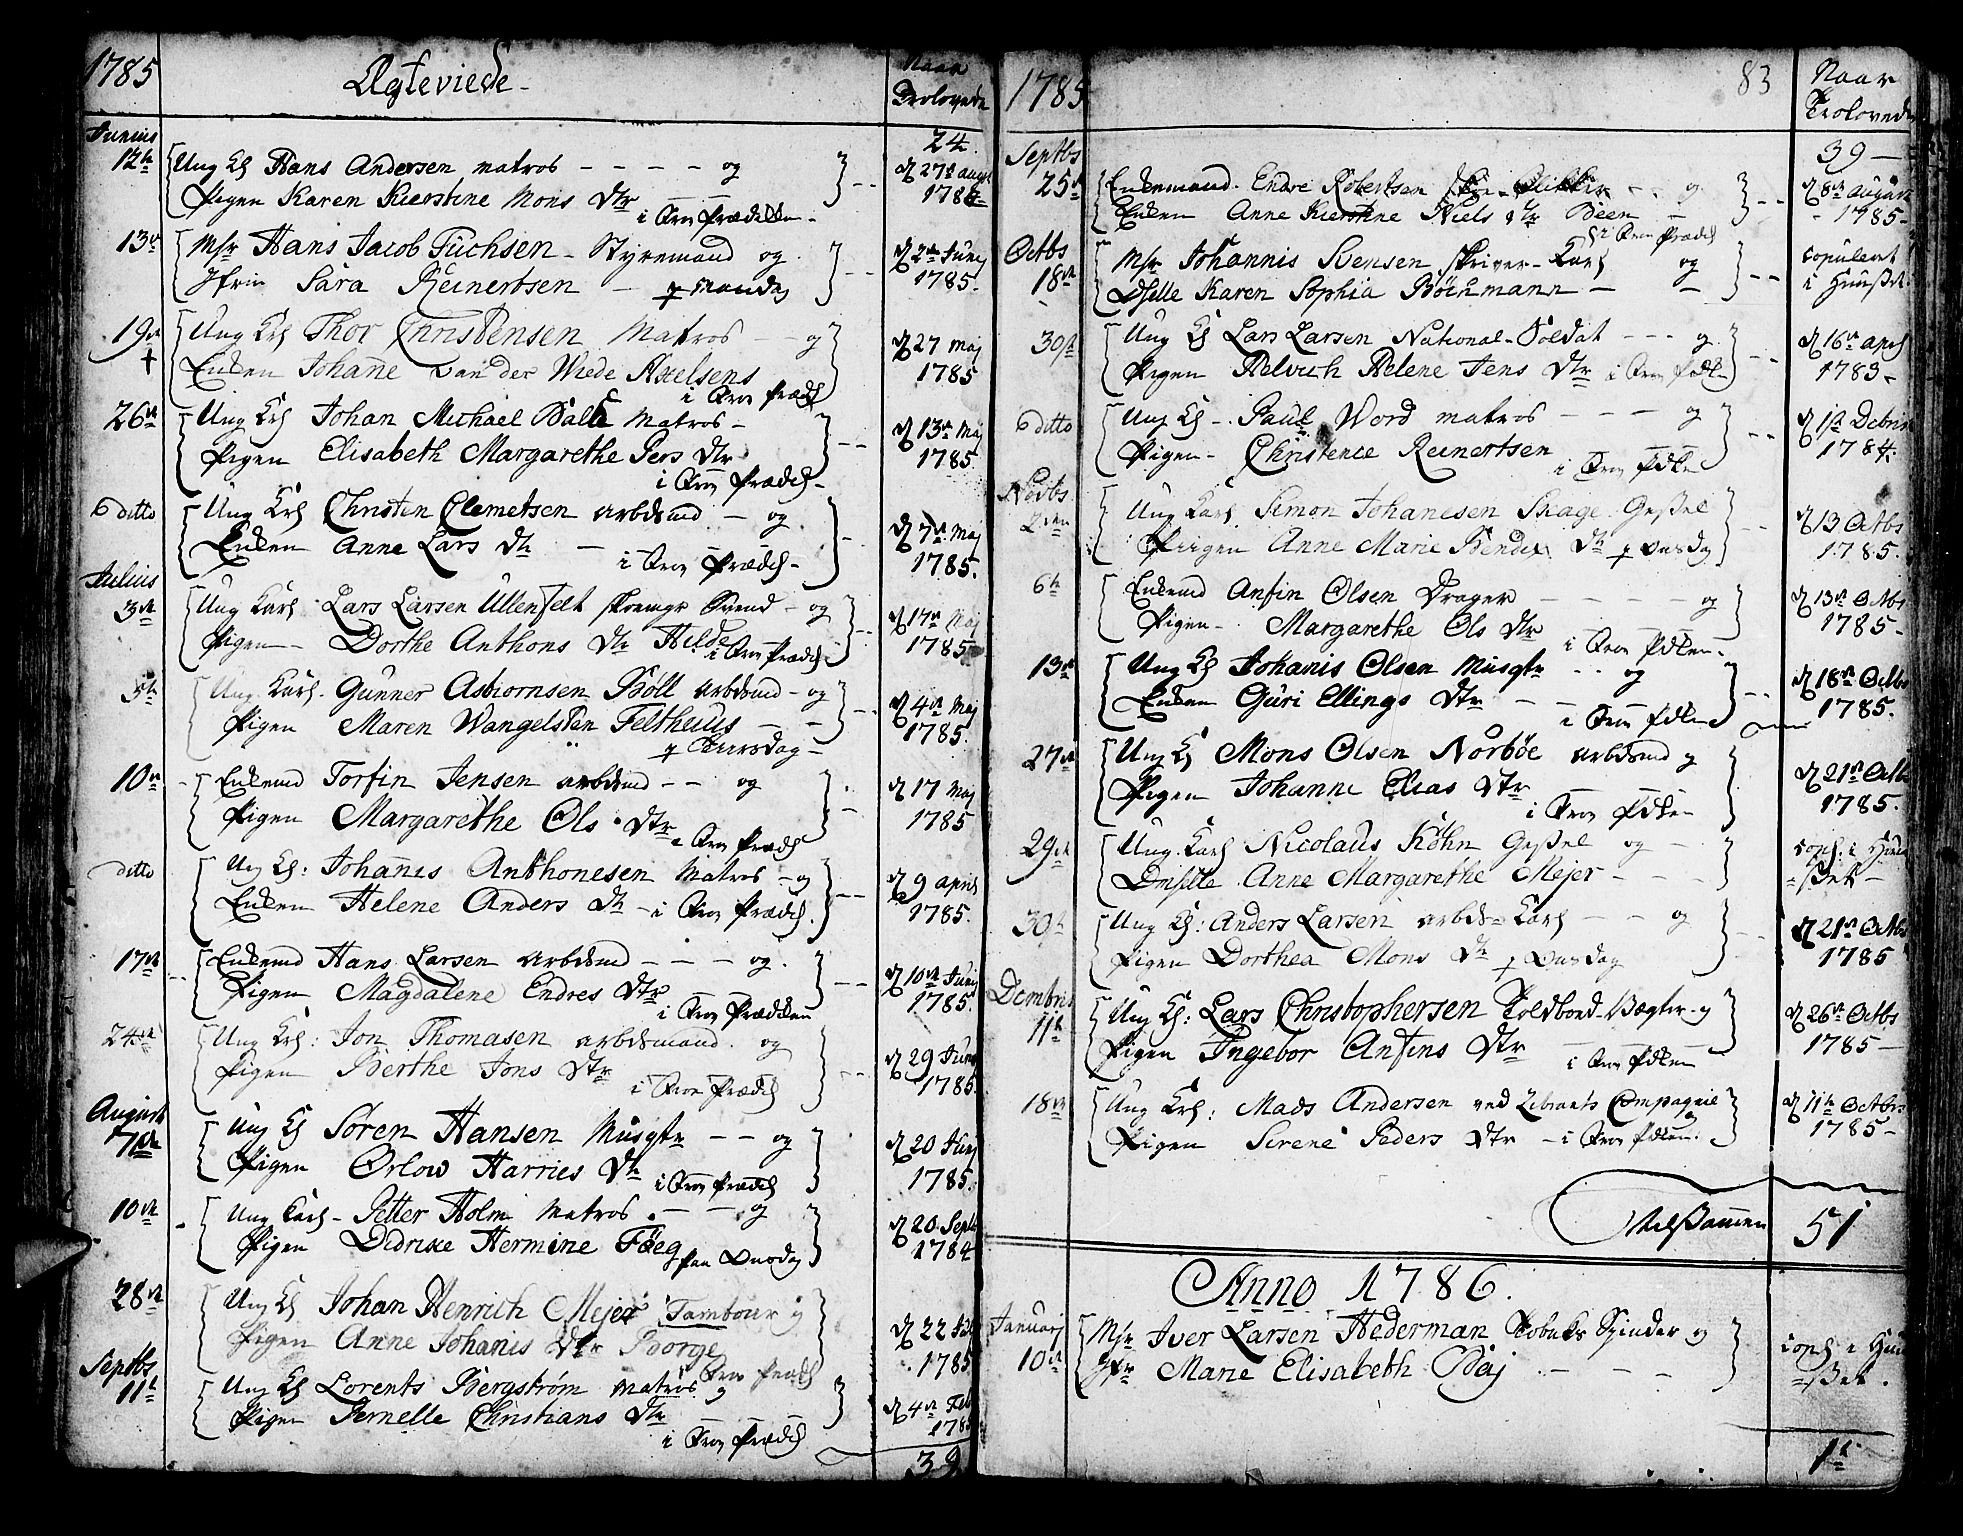 1785
Ægteviede
Naar
Trolovede
24
Junius
12te
Ung Kl Hans Andersen matros og
Pigen Karen Kierstine Mons Dtr
i Frv Prædiken
d 27de Aug
13de
Msr Hans Jacob Fuchsen Styrmand og
Jfru Sara Reinertsen p Mandag
d 2de Junij
1785
19de
Ung Krl Thor Christensen Matros og
Enken Johanne van der Wiede Axelsens
i Frv Præd
d 27 Maj
1785
26de
Ung Krl Johan Michael Matros
Pigen Elisabeth Margarethe Pers Dtr
i Frv Prædch
d 13de Maj
1785
ditto
Ung Krl Christen Clemetsen arbdsmd og
Enken Anne Lars Dtr
i Frv Prædch
d 7de Maj
1785.
Julius
3de
Ung Karl Lars Larsen Ullenfelt Svend og
Pigen Dorthe Anthons Dtr Helde
i Frv Prædch
d 17de Maj
1785
5te
Ung Karl Gunner Asbiornsen Böll arbdsmd og
Pigen Maren Wangelsten Felthuus
p Tiirsdag
d 4de Maj
1785
10de
Enkemd Torfin Jensen arbdsmd og
Pigen Margarethe Ols Dtr
i Frv Prædch
d 17 Maj
1785
ditto
Ung Kl: Johannes Anthonesen Matros og
Enken Helene Anders Dtr i Frv Prædch.
d 9 April
1785.
17de
Enkemd Hans Larsen Arbdsmd og
Pigen Magdalene Endres Dtr
i Frv Prædiken
d 10de Junij
1785.
24de
Ung Krl: Jon Thomasen arbdsmand og
Pigen Berthe Jons Dtr
i Frv Prædch
d 29 Junij
1785
August
7de
Ung Kl Sören Hansen Musqtr og
Pigen Orlow Harries Dtr
i Frv Prædch
d 20 Junij
1785.
10de
Ung Karl Petter Holm Matros og
Pigen Didrixe Hermine Föeg
paa Onsdag
d 20 Septb
1784
28de
Ung Kl Johan Henrich Mejer Tambour og
Pigen Anne Johanis Dtr Borge
Frv Prædch
d 22
1785
Septbs
11te
Ung Kl Lorents Bergström Matros og
Pigen Pernelle Christians Dtr
i Frv Prædch
d 4de Feb
39
1785
83
Naar
Trolovede
39
Septbs
25de
Enkemand Endre Robertsen og
Enken Anne Kierstine Niels Dtr Been
i Frv Prædch
d 8de August
1785
Octbs
18de
Msr Johannis Svensen Skriver-Karl og
Dselle Karen Sophia Böchmann
copuleret
i Huuset.
30te
Ung Kl Lars Larsen National-Soldat og
Pigen Helvich Helene Jens Dtr i Frv Pdken
d 16de April
1783
ditto
Ung Kl Paul Word matros og
Pigen Christence Reinertsen
i Frv Pdken
d 1te Debris
1784.
Novbs
2den
Ung Karl Simon Johanesen Skage Gesßel
Piigen Anne Marie Bendix Dtr p Onsdag
d 13 Octbs
1785.
6te
Enkemd Anfin Olsen Drager og
Pigen Margarethe Ols Dtr
i Frv Pdken
d 13de Octbs
1785
13de
Ung Kl Johanis Olsen Musqtr og
Enken Guri Ellings Dtr
i Frv Pdken
d 18de Octbs
1785.
27de
Ung Kl Mons Olsen Norböe arbdsmd og
Pigen Johanne Elias Dtr
i Frv Pdken
d 21de Octb
1785.
29de
Ung Karl Nicolaus Köhn Gesßel og
Dmselle Anne Margarethe Mejer
coph. i Huu
ßet
30te
Ung Kl: Anders Larsen arbds-Karl og
Pigen Dorthea Mons Dtr p Onsdag
d 21de Octbs
1785
Dcmbris
11te
Ung Kl: Lars Christophersen Toldbod-Vægter og
Pigen Ingebor Anfins Dtr
i Frv Pdken
d 26de Octbs
1785
18de
Ung Krl: Mads Andersen ved Zibrants Compagnie og
Pigen Serene Peders Dtr i Frv Pdken.
d 11te Octbs
1785
Tilsammen
51
Anno 1786.
Januarj
10de
Msr Iver Larsen Hederman Tobaks Spinder og
Jfr Marie Elisabeth Baj
coph i Huu
ßet.
1te